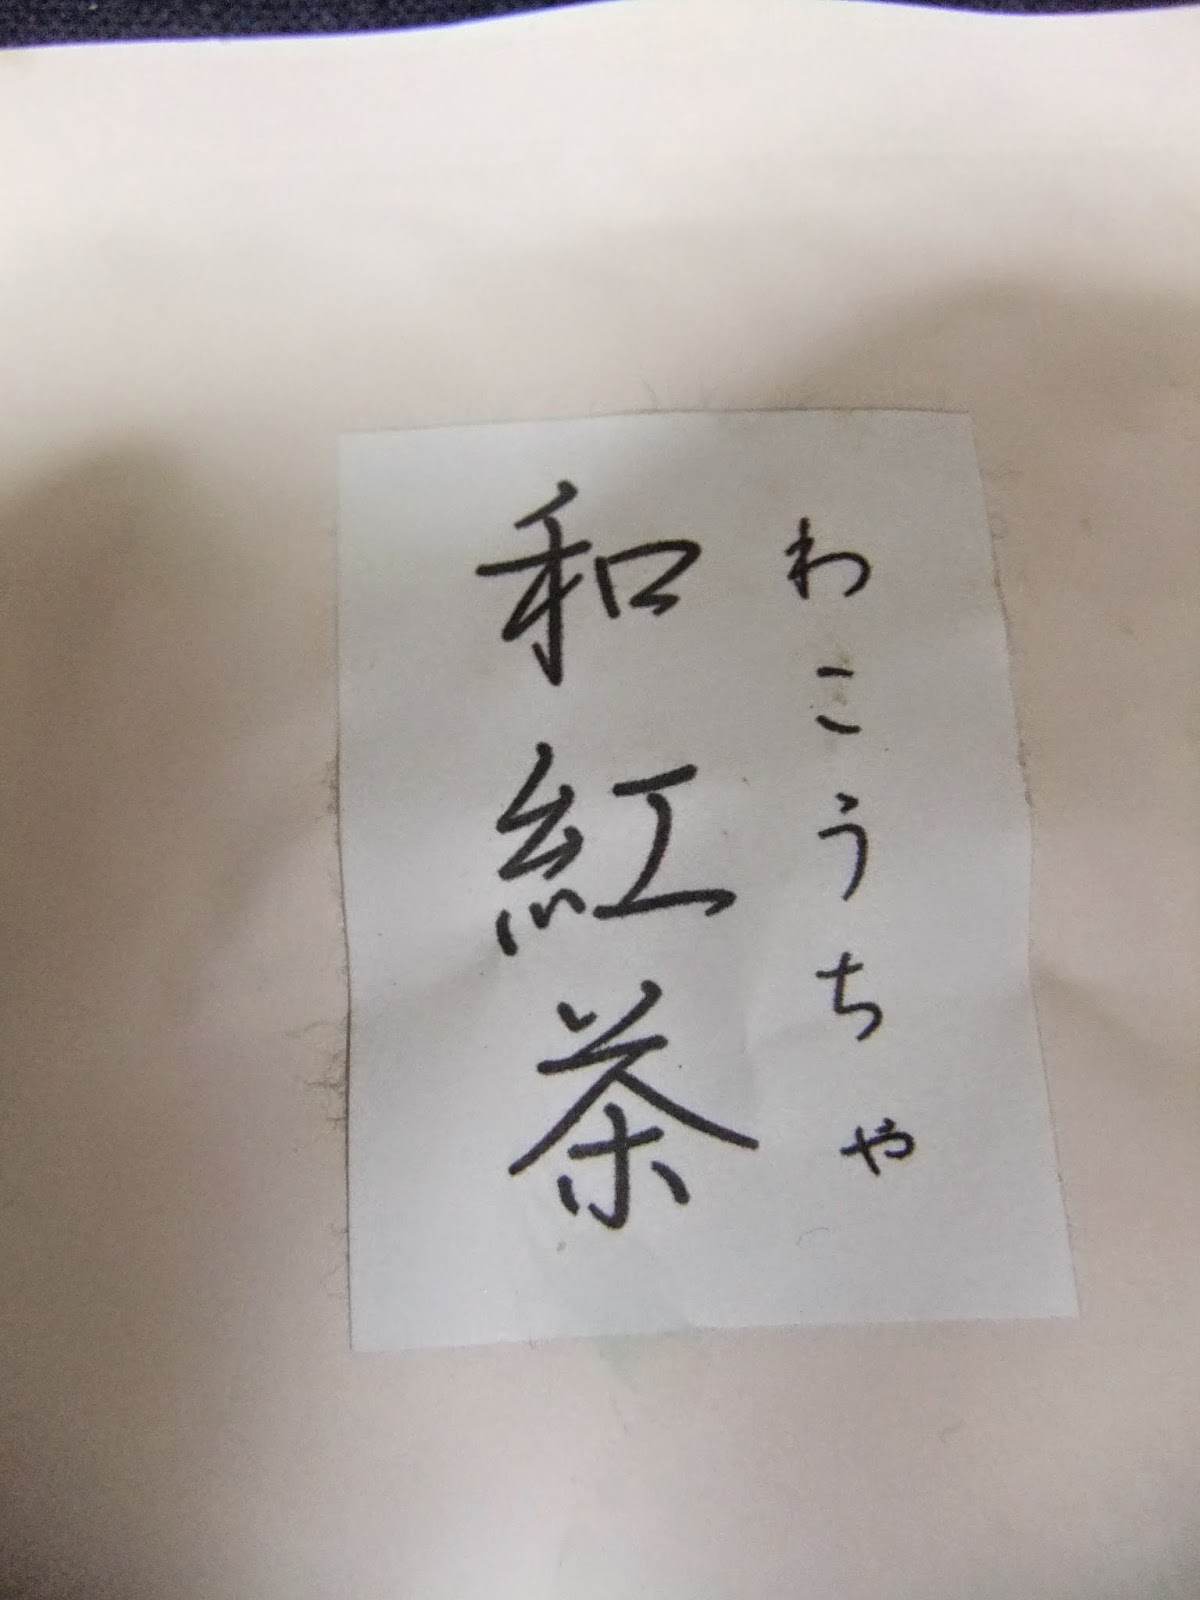 わこうちゃ
和紅茶